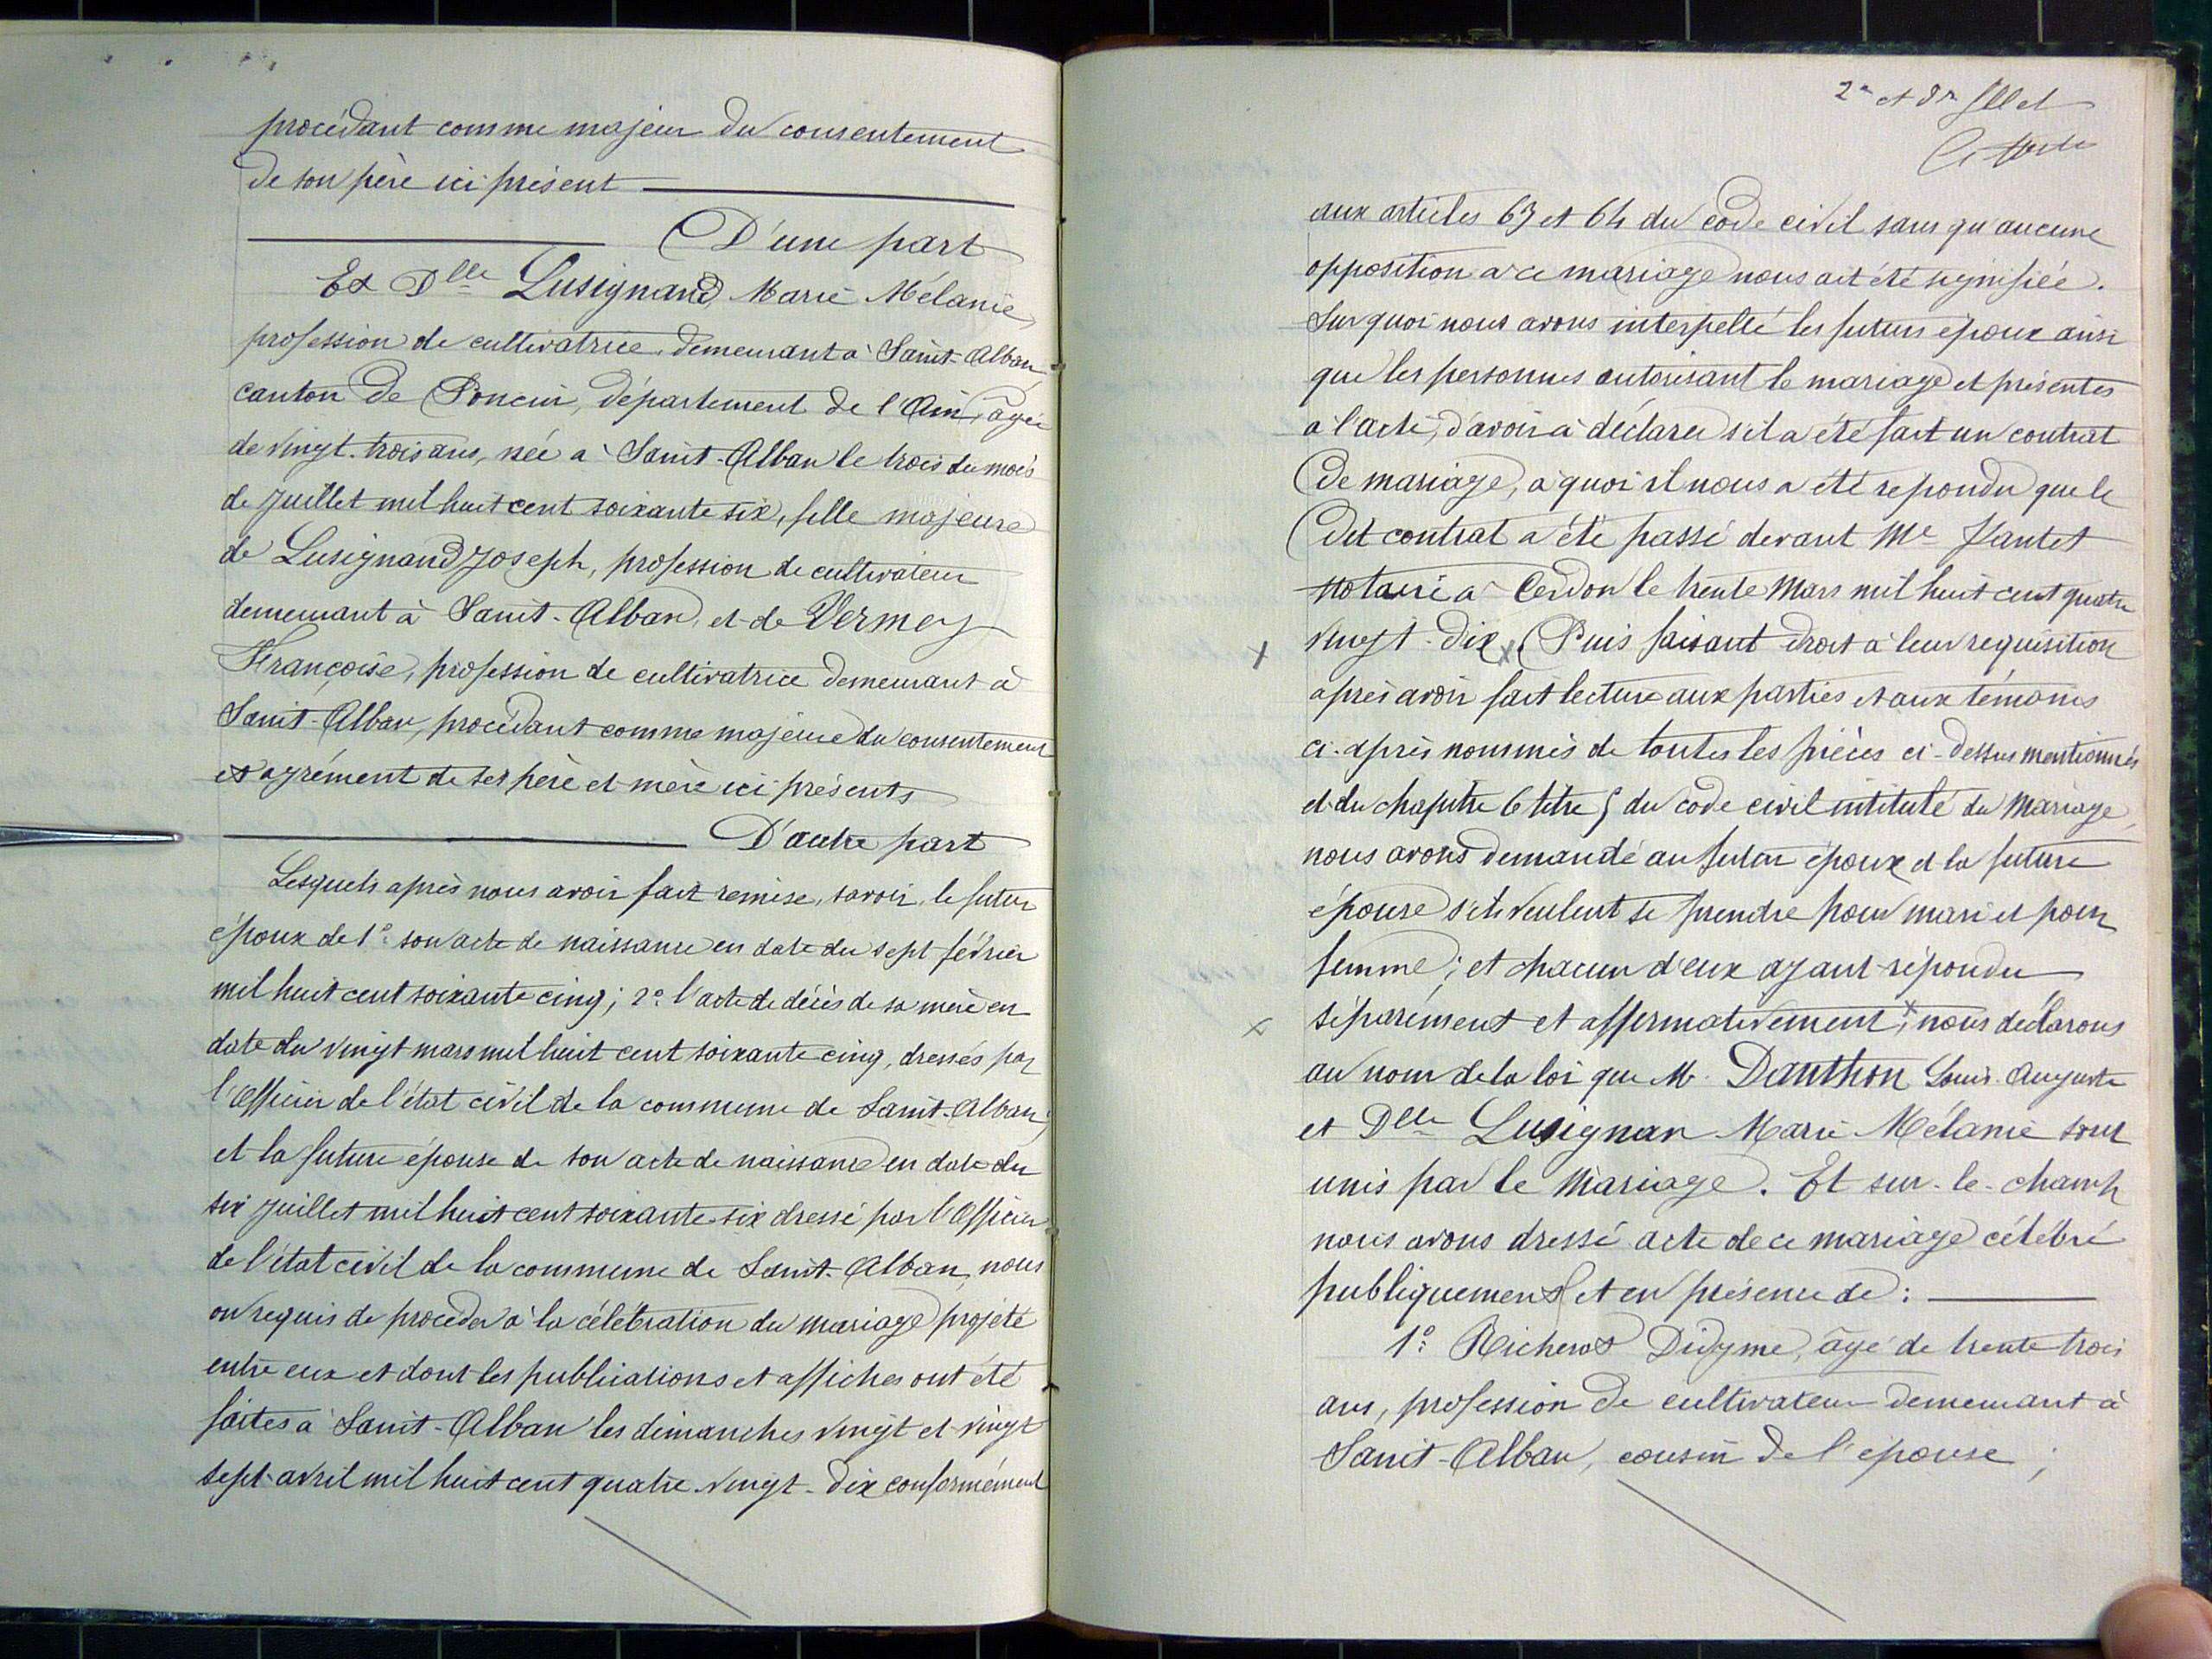 procédant comme majeur du consentement
de son père ici présent
D'une part
Et Dlle Lusignand, Marie Mélanie
profession de cultivatrice, demeurant à Saint-Alban,
canton de Poncin, département de l'Ain, âgée
de vingt-trois ans, née à Saint-Alban le trois du mois
de Juillet mil huit cent soixante six, fille majeure
de Lusignand Joseph, profession de cultivateur
demeurant à Saint-Alban, et de Vermey
Françoise, profession de cultivatrice demeurant à
Saint-Alban, procédant comme majeure du consentement
et agrément de ses père et mère ici présents
D'autre part
Lesquels après nous avoir fait remise, savoir, le futur
époux de 1° son acte de naissance en date du sept février
mil huit cent soixante cinq; 2° l'acte de décès de sa mère en
date du vingt mars mil huit cent soixante cinq, dressés par
l'Officier de l'état civil de la commune de Saint-Alban;
et la future épouse de son acte de naissance en date du
six juillet mil huit cent soixante six dressé par l'Officier
de l'état civil de la commune de Saint-Alban, nous
on requis de procéder à la célébration du mariage projeté
entre eux et dont les publications et affiches ont été
faites à Saint-Alban les dimanches vingt et vingt
sept avril mil huit cent quatre-vingt-dix conformément
2e et dr fllet
aux articles 63 et 64 du code civil sans qu'aucune
opposition à ce mariage nous ait été signifiée.
Sur quoi nous avons interpellé les futurs époux ainsi
que les personnes autorisant le mariage et présentes
à l'acte, d'avoir à déclarer s'il a été fait un contrat
de mariage, à quoi il nous a été répondu que le
dit contrat a été passé devant Me Jantet
notaire à Cerdon le trente Mars mil huit cent quatre
x vingt-dix x. Puis faisant droit à leur requisition
après avoir fait lecture aux parties et aux témoins
ci-après nommés de toutes les pièces ci-dessus mentionnées
et du chapitre 6 titre 5 du code civil intitulé du Mariage,
nous avons demandé au futur époux et la future
épouse s'ils veulent se prendre pour mari et pour
femme; et chacun d'eux ayant répondu
x séparément et affirmativement x, nous déclarons
au nom de la loi que M. Danthon Louis-Auguste
et Dlle Lusignan Marie Mélanie sont
unis par le Mariage. Et sur-le-champ
nous avons dressé acte de ce mariage célébré
publiquement et en présence de:
1° Richerot Didyme, âgé de trente trois
ans, profession de cultivateur demeurant à
Saint-Alban, cousin de l'épouse;